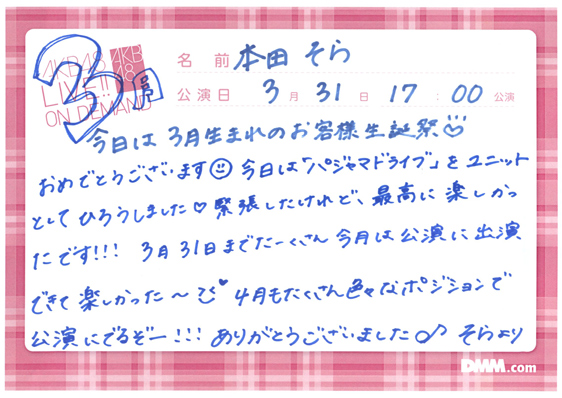 AKB48
LIVE!!
ON DEMAND
AKB
48
3月
名前 本田 そら
公演日 3月 31日 17:00 公演
今日は3月生まれのお客様生誕祭
おめでとうございます 今日は「パジャマドライブ」をユニット
としてひろうしました♡ 緊張したけれど、最高に楽しかっ
たです!!! 3月31日までたーくさん今月は公演に出演
できて楽しかった〜 4月もたくさん色々なポジションで
公演にでるぞー!!! ありがとうございました♪ そらより
DMM.com